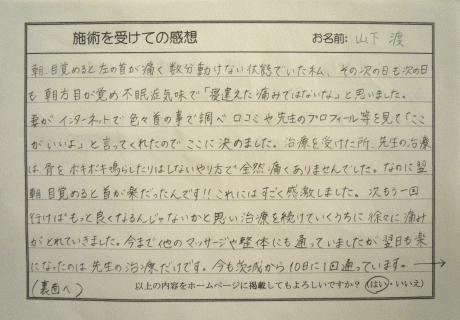 施術を受けての感想 お名前: 山下 渡
朝、目覚めると左の首が痛く数分動けない状態でいた私、その次の日も次の日
も朝方目が覚め不眠症気味で「寝違えた痛みではないな」と思いました。
妻がインターネットで色々首の事で調べ口コミや先生のプロフィール等を見て「ここ
がいいよ」と言ってくれたのでここに決めました。治療を受けた所、先生の治療
は、骨をボキボキ鳴らしたりはしないやり方で全然痛くありませんでした。なのに翌
朝目覚めると首が楽だったんです!!これにはすごく感激しました。次もう一回
行けばもっと良くなるんじゃないかと思い治療を続けていくうちに徐々に痛み
がとれていきました。今まで他のマッサージや整体にも通っていましたが翌日も楽
になったのは先生の治療だけです。今も茨城から10日に1回通っています。→
(裏面へ) 以上の内容をホームページに掲載してもよろしいですか?(はい・いいえ)